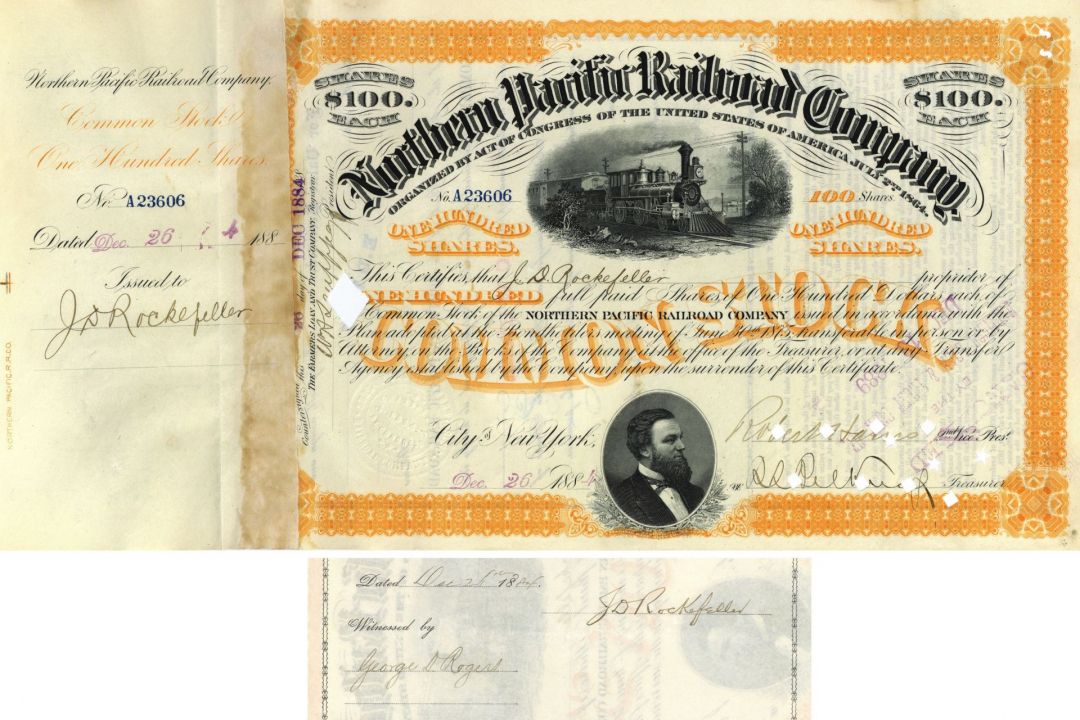 Northern Pacific Railroad Company.
Common Stock
One Hundred Shares.
No. A23606
Dated Dec. 26 4 188
Issued to
J D Rockefeller
NORTHERN PACIFIC R.R.CO.
Countersigned this 26 day of DEC 1884
THE FARMERS LOAN AND TRUST COMPANY, Registrar.
President
SHARES
$100.
EACH
SHARES
$100.
EACH
Northern Pacific Railroad Company,
ORGANIZED BY ACT OF CONGRESS OF THE UNITED STATES OF AMERICA, JULY 2nd 1864.
No. A23606
100 Shares.
ONE HUNDRED
SHARES.
ONE HUNDRED
SHARES.
This Certifies, that J. D. Rockefeller proprietor of
ONE HUNDRED full paid Shares of One Hundred Dollars each, of
the Common Stock of the NORTHERN PACIFIC RAILROAD COMPANY issued in accordance with the
Plan adopted at the Bondholders meeting of June 30th 1875, transferable in person or by
Attorney, on the Books of the Company at the office of the Treasurer, or at any Transfer
Agency established by the Company upon the surrender of this Certificate.
COMMON STOCK
City of New York,
Dec. 26 1884
Robert Harris Vice Prest.
Treasurer
Dated Dec 26th 1884.
J D Rockefeller
Witnessed by
George D. Rogers